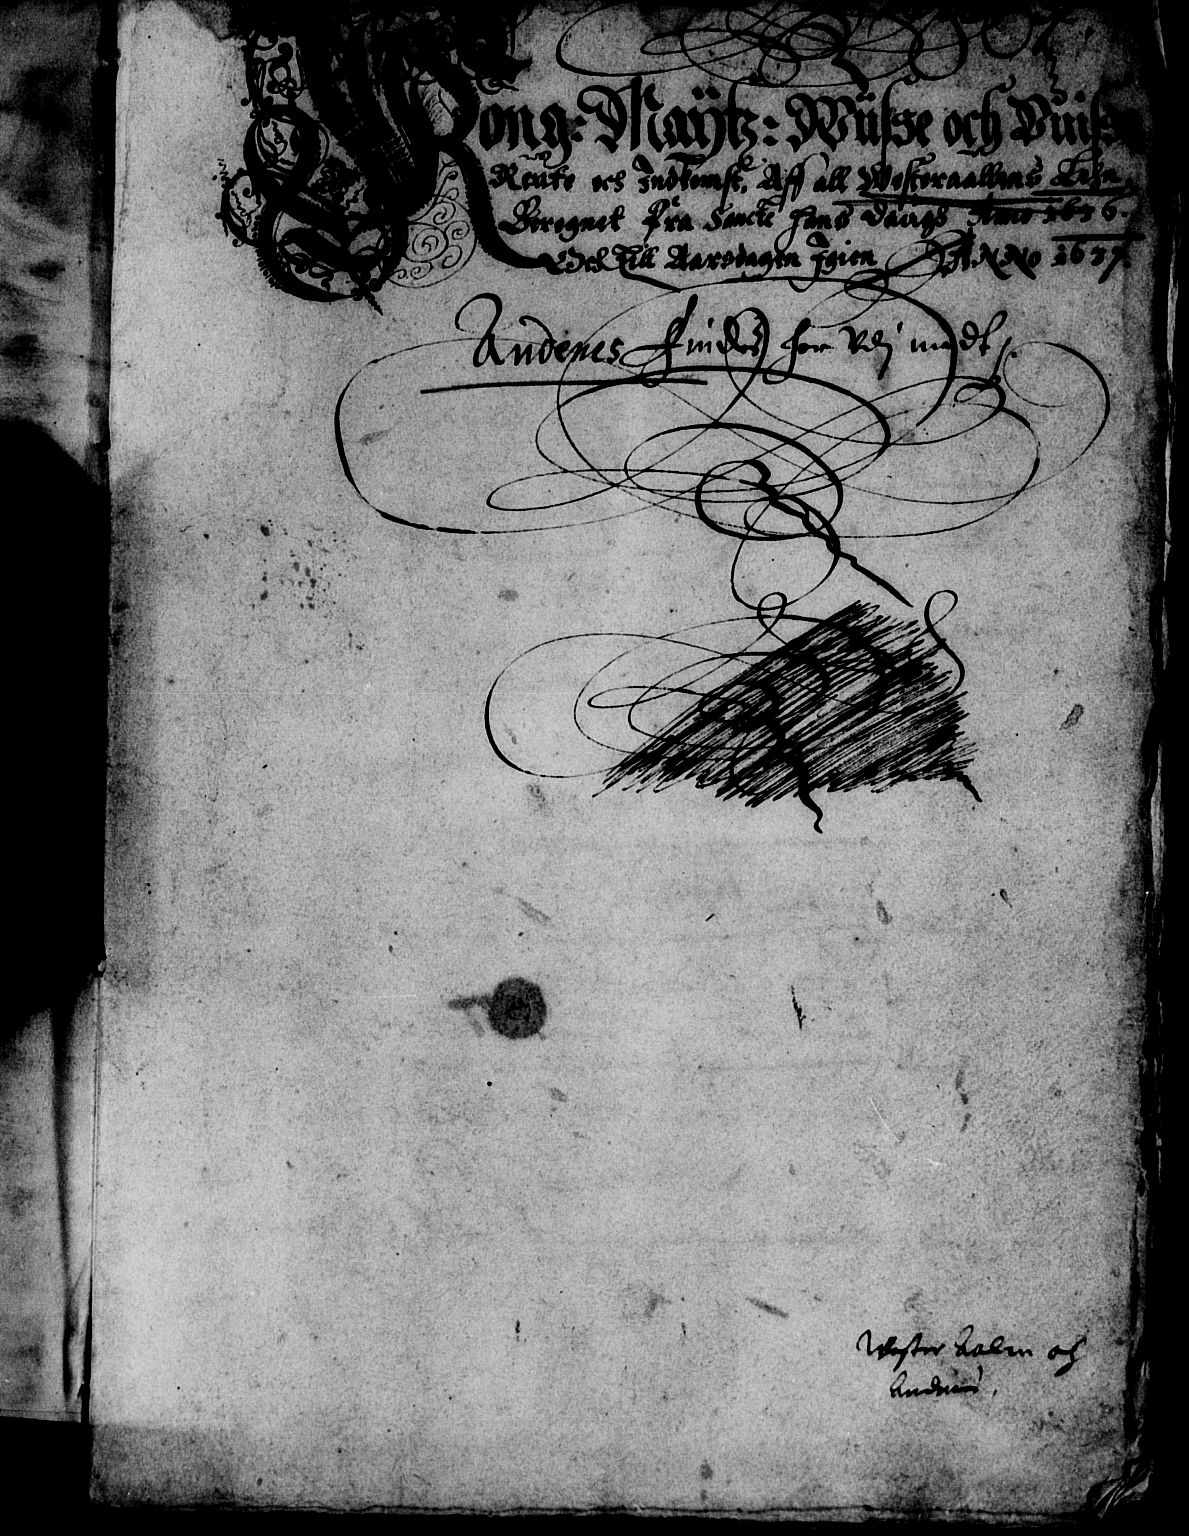 Kong: Maÿtz: Wüsse och Vuiss
Rente och Indkomst, Aff all Westeraallens Lehn,
Beregnet Fra Sancte Hans Daugs Anno 1636.
Och Till Aarsdagen Igien ANNO 1637.
Andenes findes her vdj medt.
Wester aalen och
Andenes,